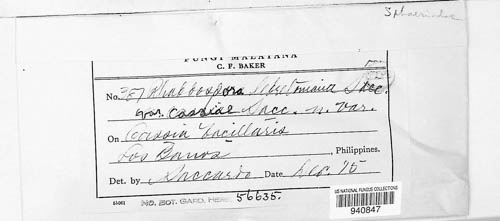 FUNGI MALAYANA
C. F. BAKER
No. 387 Rhabdospora Sacc.
var. cassiae Sacc. n. var.
On Cassia bacillaris
Los Banos, Philippines.
Det. by Saccardo Date Dec. 15
51061 NO. BOT. GARD. HERB. 56635.
US NATIONAL FUNGUS COLLECTIONS
940847